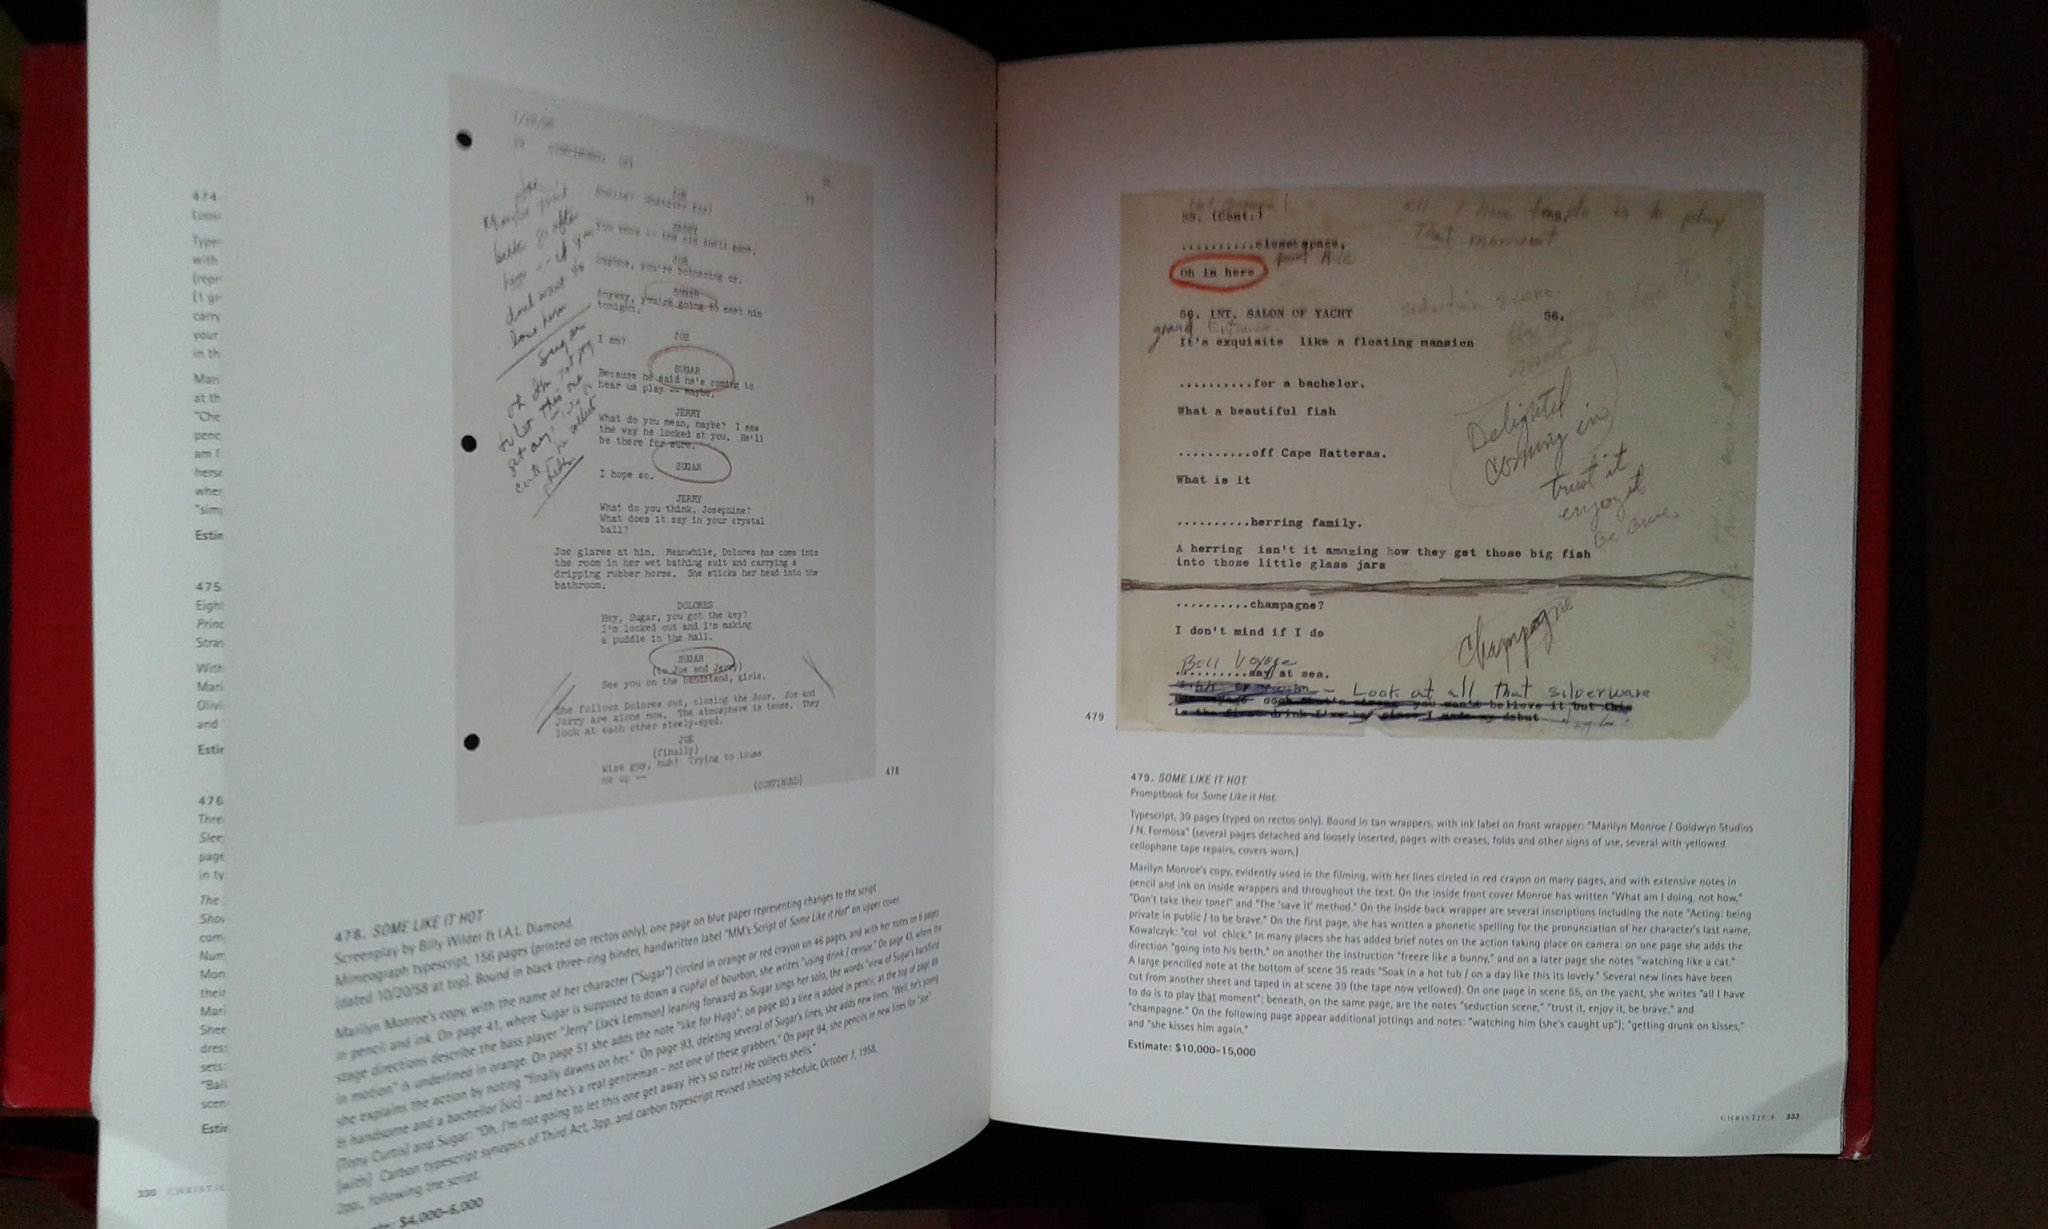 474.
Type
with
(repr
(1 gr
carry
your
in th
Mari
at th
"Che
penc
am I
herse
wher
"simp
Estir
475
Eight
Princ
Stras
With
Mari
Olivi
and
Estir
476
Three
Slee
page
in ty
The
Show
com
Num
Mon
their
Mari
Shee
dres
sets
"Ball
scen
Estir
330 CHRISTIE
JOE
JERRY
You know -- the old shell game.
JOE
Daphne, you're bothering us.
SUGAR
Anyway, you're going to meet him
tonight.
JOE
I am?
SUGAR
Because he said he's coming to
hear us play -- maybe.
JERRY
What do you mean, maybe? I saw
the way he looked at you. He'll
be there for sure.
SUGAR
I hope so.
JERRY
What do you think, Josephine?
What does it say in your crystal
ball?
Joe glares at him. Meanwhile, Dolores has come into
the room in her wet bathing suit and carrying a
dripping rubber horse. She sticks her head into the
bathroom.
DOLORES
Hey, Sugar, you got the key?
I'm locked out and I'm making
a puddle in the hall.
SUGAR
(to Joe and Jerry)
See you on the bandstand, girls.
She follows Dolores out, closing the door. Joe and
Jerry are alone now. The atmosphere is tense. They
look at each other steely-eyed.
JOE
(finally)
Wise guy, huh? Trying to louse
me up --
(CONTINUED)
Joe
Maybe you'd
better go after
him -- if you
don't want to
lose him
Sugar
Oh I'm not going
to let this one
get away
shells
478
478. SOME LIKE IT HOT
Screenplay by Billy Wilder & I.A.L. Diamond.
Mimeograph typescript, 156 pages (printed on rectos only), one page on blue paper representing changes to the script
(dated 10/20/58 at top). Bound in black three-ring binder, handwritten label "MM's Script of Some Like it Hot" on upper cover.
Marilyn Monroe's copy, with the name of her character ("Sugar") circled in orange or red crayon on 46 pages, and with her notes on 6 pages
in pencil and ink. On page 41, where Sugar is supposed to down a cupful of bourbon, she writes "using drink / censor." On page 43, where the
stage directions describe the bass player "Jerry" (Jack Lemmon) leaning forward as Sugar sings her solo, the words "view of Sugar's backfield
in motion" is underlined in orange. On page 51 she adds the note "like for Hugo"; on page 80 a line is added in pencil; at the top of page 85
she explains the action by noting "finally dawns on her." On page 93, deleting several of Sugar's lines, she adds new lines: "Well, he's young
& handsome and a bachellor [sic] - and he's a real gentleman - not one of these grabbers." On page 94, she pencils in new lines for "Joe"
(Tony Curtis) and Sugar: "Oh, I'm not going to let this one get away. He's so cute! He collects shells."
[with] Carbon typescript synopsis of Third Act, 3pp. and carbon typescript revised shooting schedule, October 7, 1958,
2pp., following the script.
$4,000-6,000
all I have to do is to play
That moment
55. (Cont.)
..........closet space.
Oh in here
56. INT. SALON OF YACHT 56.
seduction scene
grand Entrance
It's exquisite like a floating mansion
..........for a bachelor.
What a beautiful fish
..........off Cape Hatteras.
What is it
..........herring family.
A herring isn't it amazing how they get those big fish
into those little glass jars
Delightful
coming in
trust it
enjoy it
be brave
..........champagne?
I don't mind if I do
Champagne
Bon Voyage
..........day at sea.
- Look at all that silverware
oooh that's strong you won't believe it but this
is the first drink I've had since I made my debut
479
479. SOME LIKE IT HOT
Promptbook for Some Like it Hot.
Typescript, 39 pages (typed on rectos only). Bound in tan wrappers, with ink label on front wrapper: "Marilyn Monroe / Goldwyn Studios
/ N. Formosa" (several pages detached and loosely inserted, pages with creases, folds and other signs of use, several with yellowed
cellophane tape repairs, covers worn.)
Marilyn Monroe's copy, evidently used in the filming, with her lines circled in red crayon on many pages, and with extensive notes in
pencil and ink on inside wrappers and throughout the text. On the inside front cover Monroe has written "What am I doing, not how,"
"Don't take their tone!" and "The 'save it' method." On the inside back wrapper are several inscriptions including the note "Acting: being
private in public / to be brave." On the first page, she has written a phonetic spelling for the pronunciation of her character's last name,
Kowalczyk: "col vol chick." In many places she has added brief notes on the action taking place on camera: on one page she adds the
direction "going into his berth," on another the instruction "freeze like a bunny," and on a later page she notes "watching like a cat."
A large pencilled note at the bottom of scene 35 reads "Soak in a hot tub / on a day like this its lovely." Several new lines have been
cut from another sheet and taped in at scene 39 (the tape now yellowed). On one page in scene 55, on the yacht, she writes "all I have
to do is to play that moment"; beneath, on the same page, are the notes "seduction scene," "trust it, enjoy it, be brave," and
"champagne." On the following page appear additional jottings and notes: "watching him (she's caught up"); "getting drunk on kisses,"
and "she kisses him again."
Estimate: $10,000-15,000
CHRISTIE'S 331